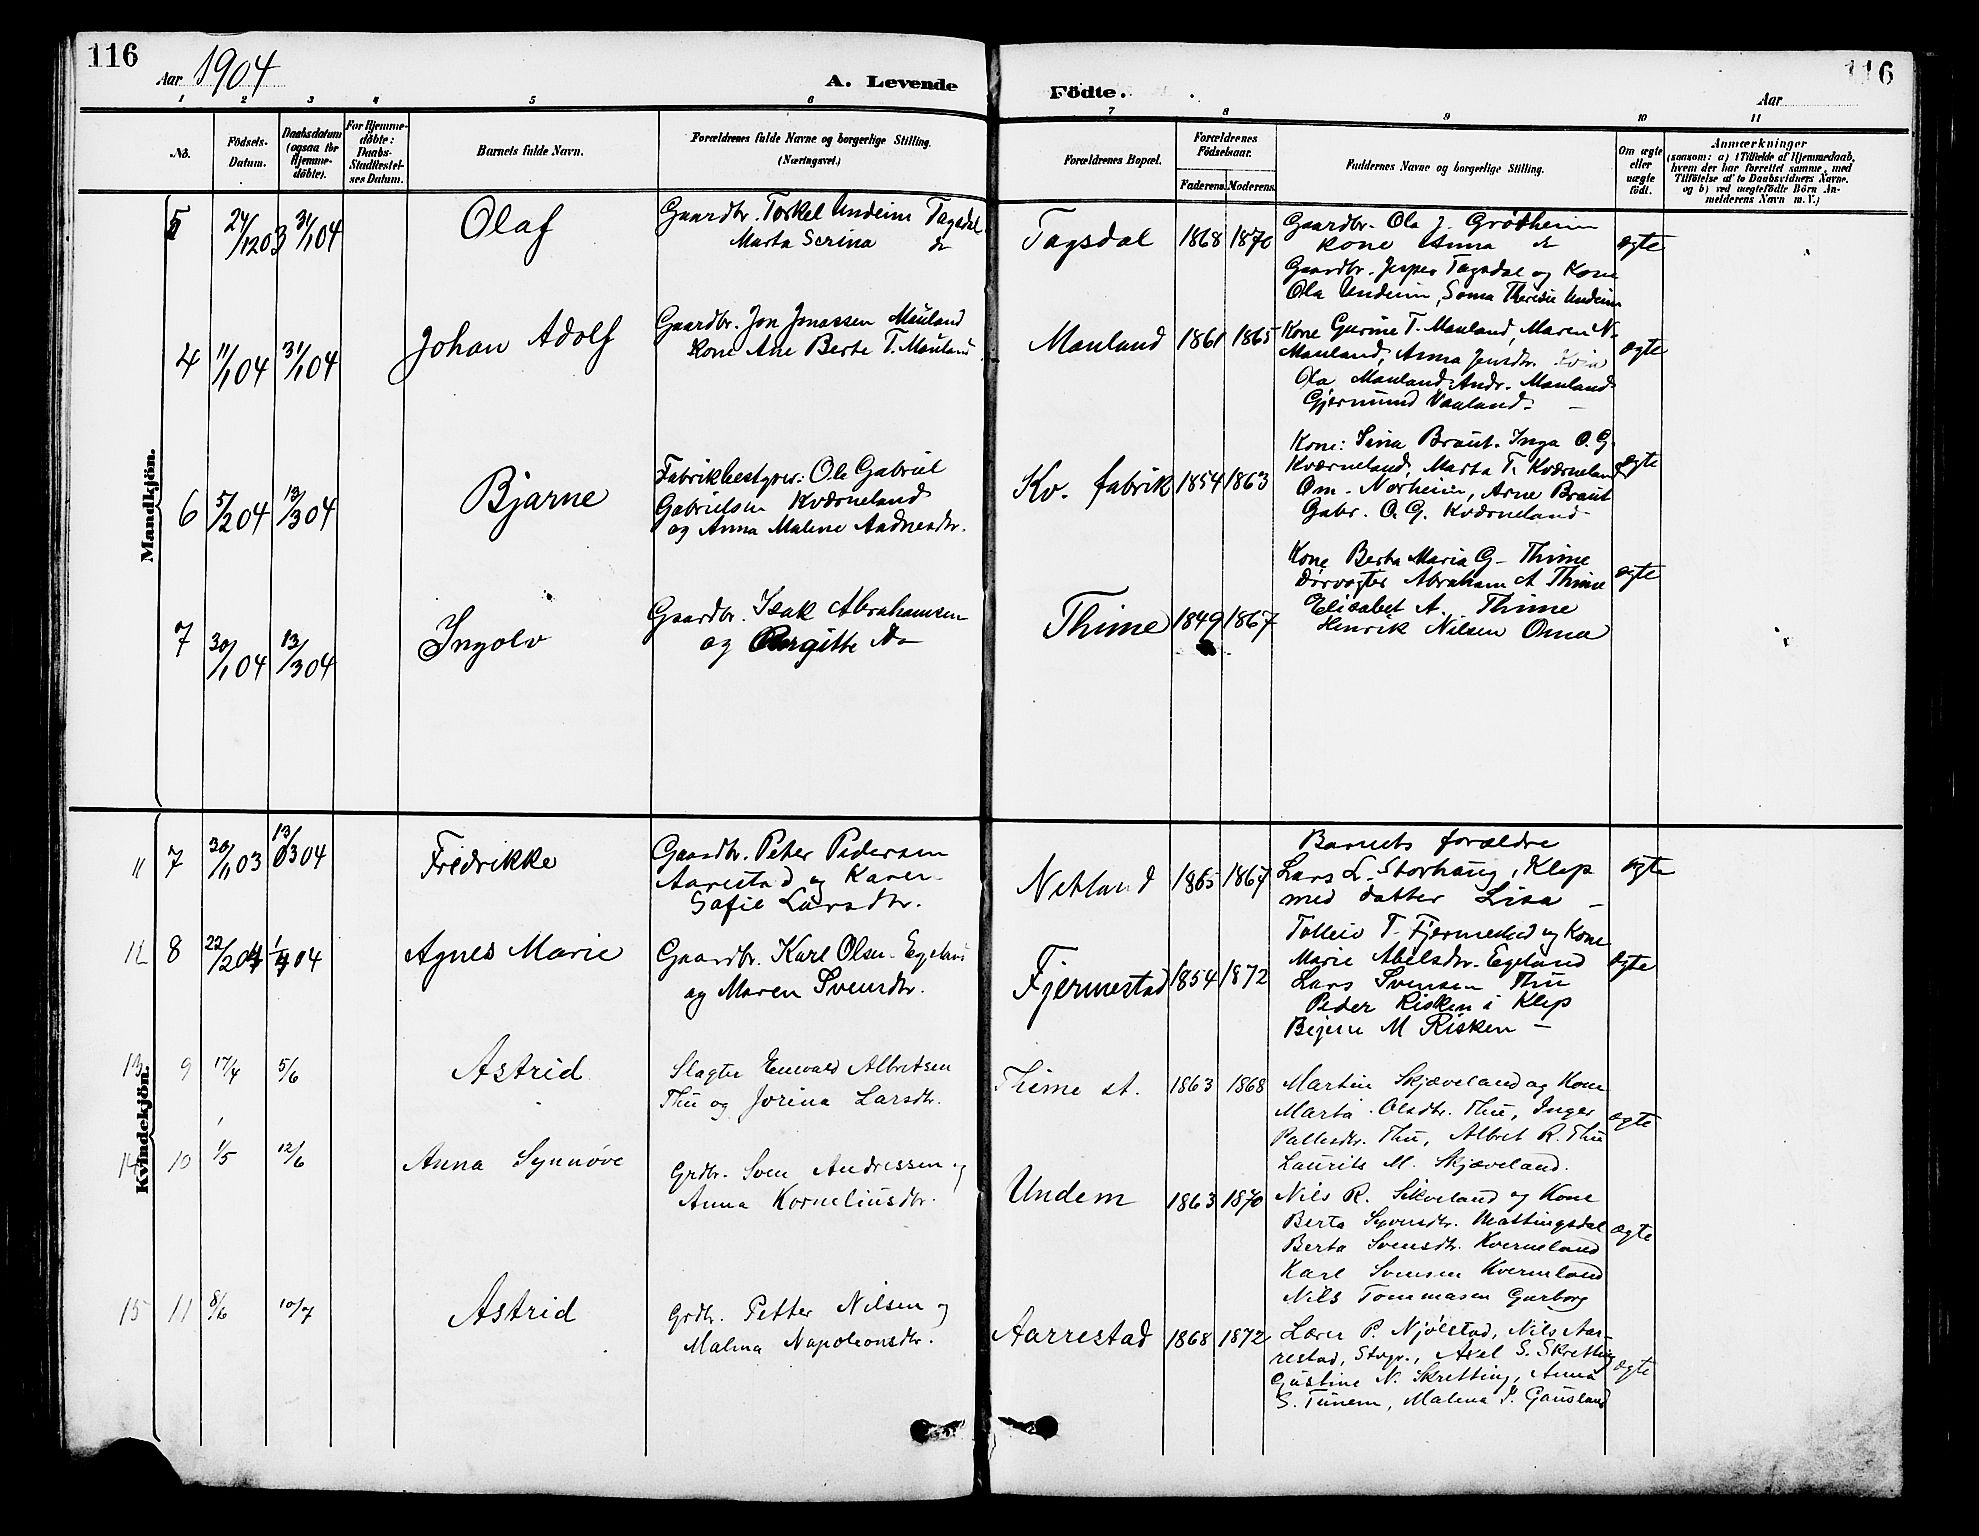 116
Aar 1904
A. Levende
Födte.
116
Aar
1 2 3 4 5 6 7 8 9 10 11
No.
Födsels-
Datum.
Daabsdatum
(ogsaa for
Hjemme-
döbte).
For Hjemme-
döbte:
Daabs-
Stadfæstel-
ses Datum.
Barnets fulde Navn.
Forældrenes fulde Navne og borgerlige Stilling.
(Næringsvei.)
Forældrenes Bopæl.
Forældrenes
Födselsaar.
Faderens. Moderens.
Faddernes Navne og borgerlige Stilling.
Om ægte
eller
uægte
födt.
Anmærkninger
(saasom: a) i Tilfælde af Hjemmedaab,
hvem der har forrettet samme, med
Tilföielse af to Daabsvidners Navne.
og b) ved uægtefödte Börn An-
melderens Navn m. V.)
Mandkjön.
5 24/12 03 31/1 04 Olaf
Gaardbr. Torkel Undeim Tagsdal
Marta Serina do
Tagsdal 1868 1870
Gaardbr. Ola J. Grødheim
Kone Anna do
Gaardbr. Jesper Tagsdal og Kone
Ola Undeim, Soma Theresie Undeim
ægte
4 11/1 04 31/1 04 Johan Adolf
Gaardbr. Jon Jonassen Mauland
Kone Ane Berte T. Mauland
Mauland 1861 1865
Kone Gurine T. Mauland, Maren N.
Mauland, Anna Jensdtr.
Ola Mauland, Andr. Mauland
Gjermund Vauland.
ægte
6 5/2 04 13/3 04 Bjarne
Fabrikbestyrer: Ola Gabriel
Gabrielsen Kværneland
og Anna Malene Aadnesdtr.
Kv. fabrik 1854 1863
Kone: Sina Braut. Inga O. G.
Kværneland, Marta T. Kværneland
Om. Norheim, Arne Braut
Gabr. O. G. Kværneland
ægte
7 30/1 04 13/3 04 Ingolv
Gaardbr. Isak Abrahamsen
og Birgitte do
Thime 1849 1867
Kone Berta Maria G. Thime
Dørvogter Abraham A Thime
Elisabet A. Thime
Henrik Nilsen Oma
ægte
Kvindekjön.
11 7 30/11 03 13/3 04 Fredrikke
Gaardbr. Peter Pedersen
Aarestad og Karen
Sofie Larsdtr.
Netland 1865 1867
Barnets forældre
Lars L. Storhaug, Klep
med datter Lisa
ægte
12 8 22/2 04 1/4 04 Agnes Marie
Gaardbr. Karl Olsen Egeland
og Maren Svensdtr.
Fjermestad 1854 1872
Tolleiv T. Fjermestad og Kone
Marie Abelsdtr. Egeland
Lars Svensen Thu
Peder Risken i Klep
M Risken
ægte
13 9 17/4 5/6 Astrid
Slagter Enevald Albretsen
Thu og Jorina Larsdtr.
Thime st. 1863 1868
Martin Skjæveland og Kone
Marta Olsdtr. Thu, Inger
Pallesdtr. Thu, Albret R. Thu
Laurits M. Skjæveland.
ægte
14 10 1/5 12/6 Anna Synnøve
Grdbr. Sven Andressen og
Anna Korneliusdtr.
Undem 1863 1870
Nils R. Sikveland og Kone
Berta Syvensdtr. Mattingsdal
Berta Svensdtr. Kverneland
Karl Svensen Kverneland
Nils Tommasen Gurborg
ægte
15 11 8/6 10/7 Astrid
Grdbr. Petter Nilsen og
Malena Napoleonsdtr.
Aarrestad 1868 1872
Lærer P. Njølstad, Nils Aar-
restad, Stvgr., Axel S. Skretting
Gustine N. Skretting, Anna
S. Tunem, Malena P. Gausland
ægte